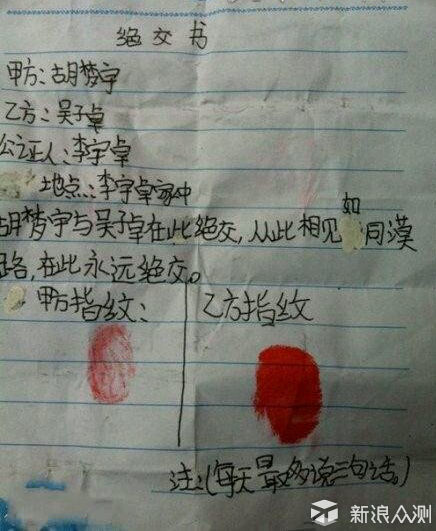 绝交书
甲方:胡梦宇
乙方:吴子卓
公证人:李宇卓
地点:李宇卓家中
胡梦宇与吴子卓在此绝交,从此相见如同漠
路,在此永远绝交。
甲方指纹: 乙方指纹
注:(每天最多说三句话。)
新浪众测